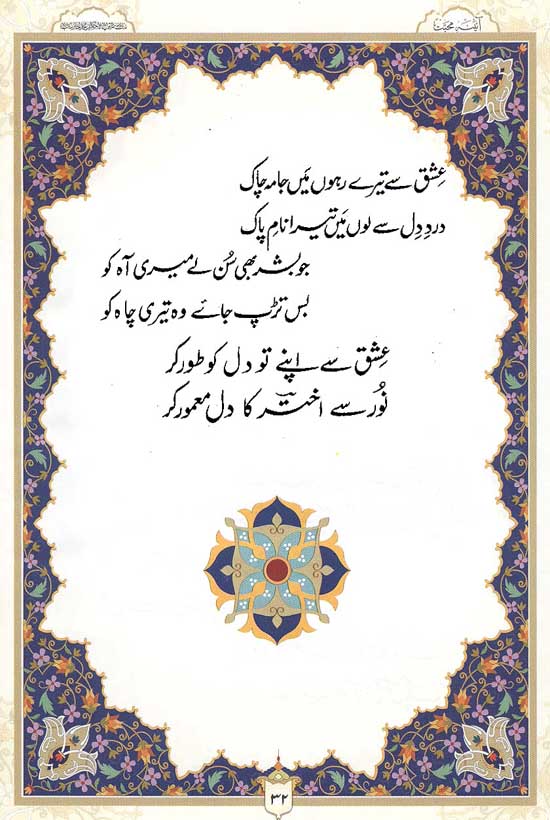 آئینۂ محبت
عِشق سے تیرے رہوں مَیں جامہ چاک
دردِ دِل سے لوں مَیں تیرا نامِ پاک
جو بشر بھی سُن لے میری آہ کو
بس تڑپ جائے وہ تیری چاہ کو
عِشق سے اپنے تو دل کو طور کر
نُور سے اختؔر کا دل معمور کر
۳۲